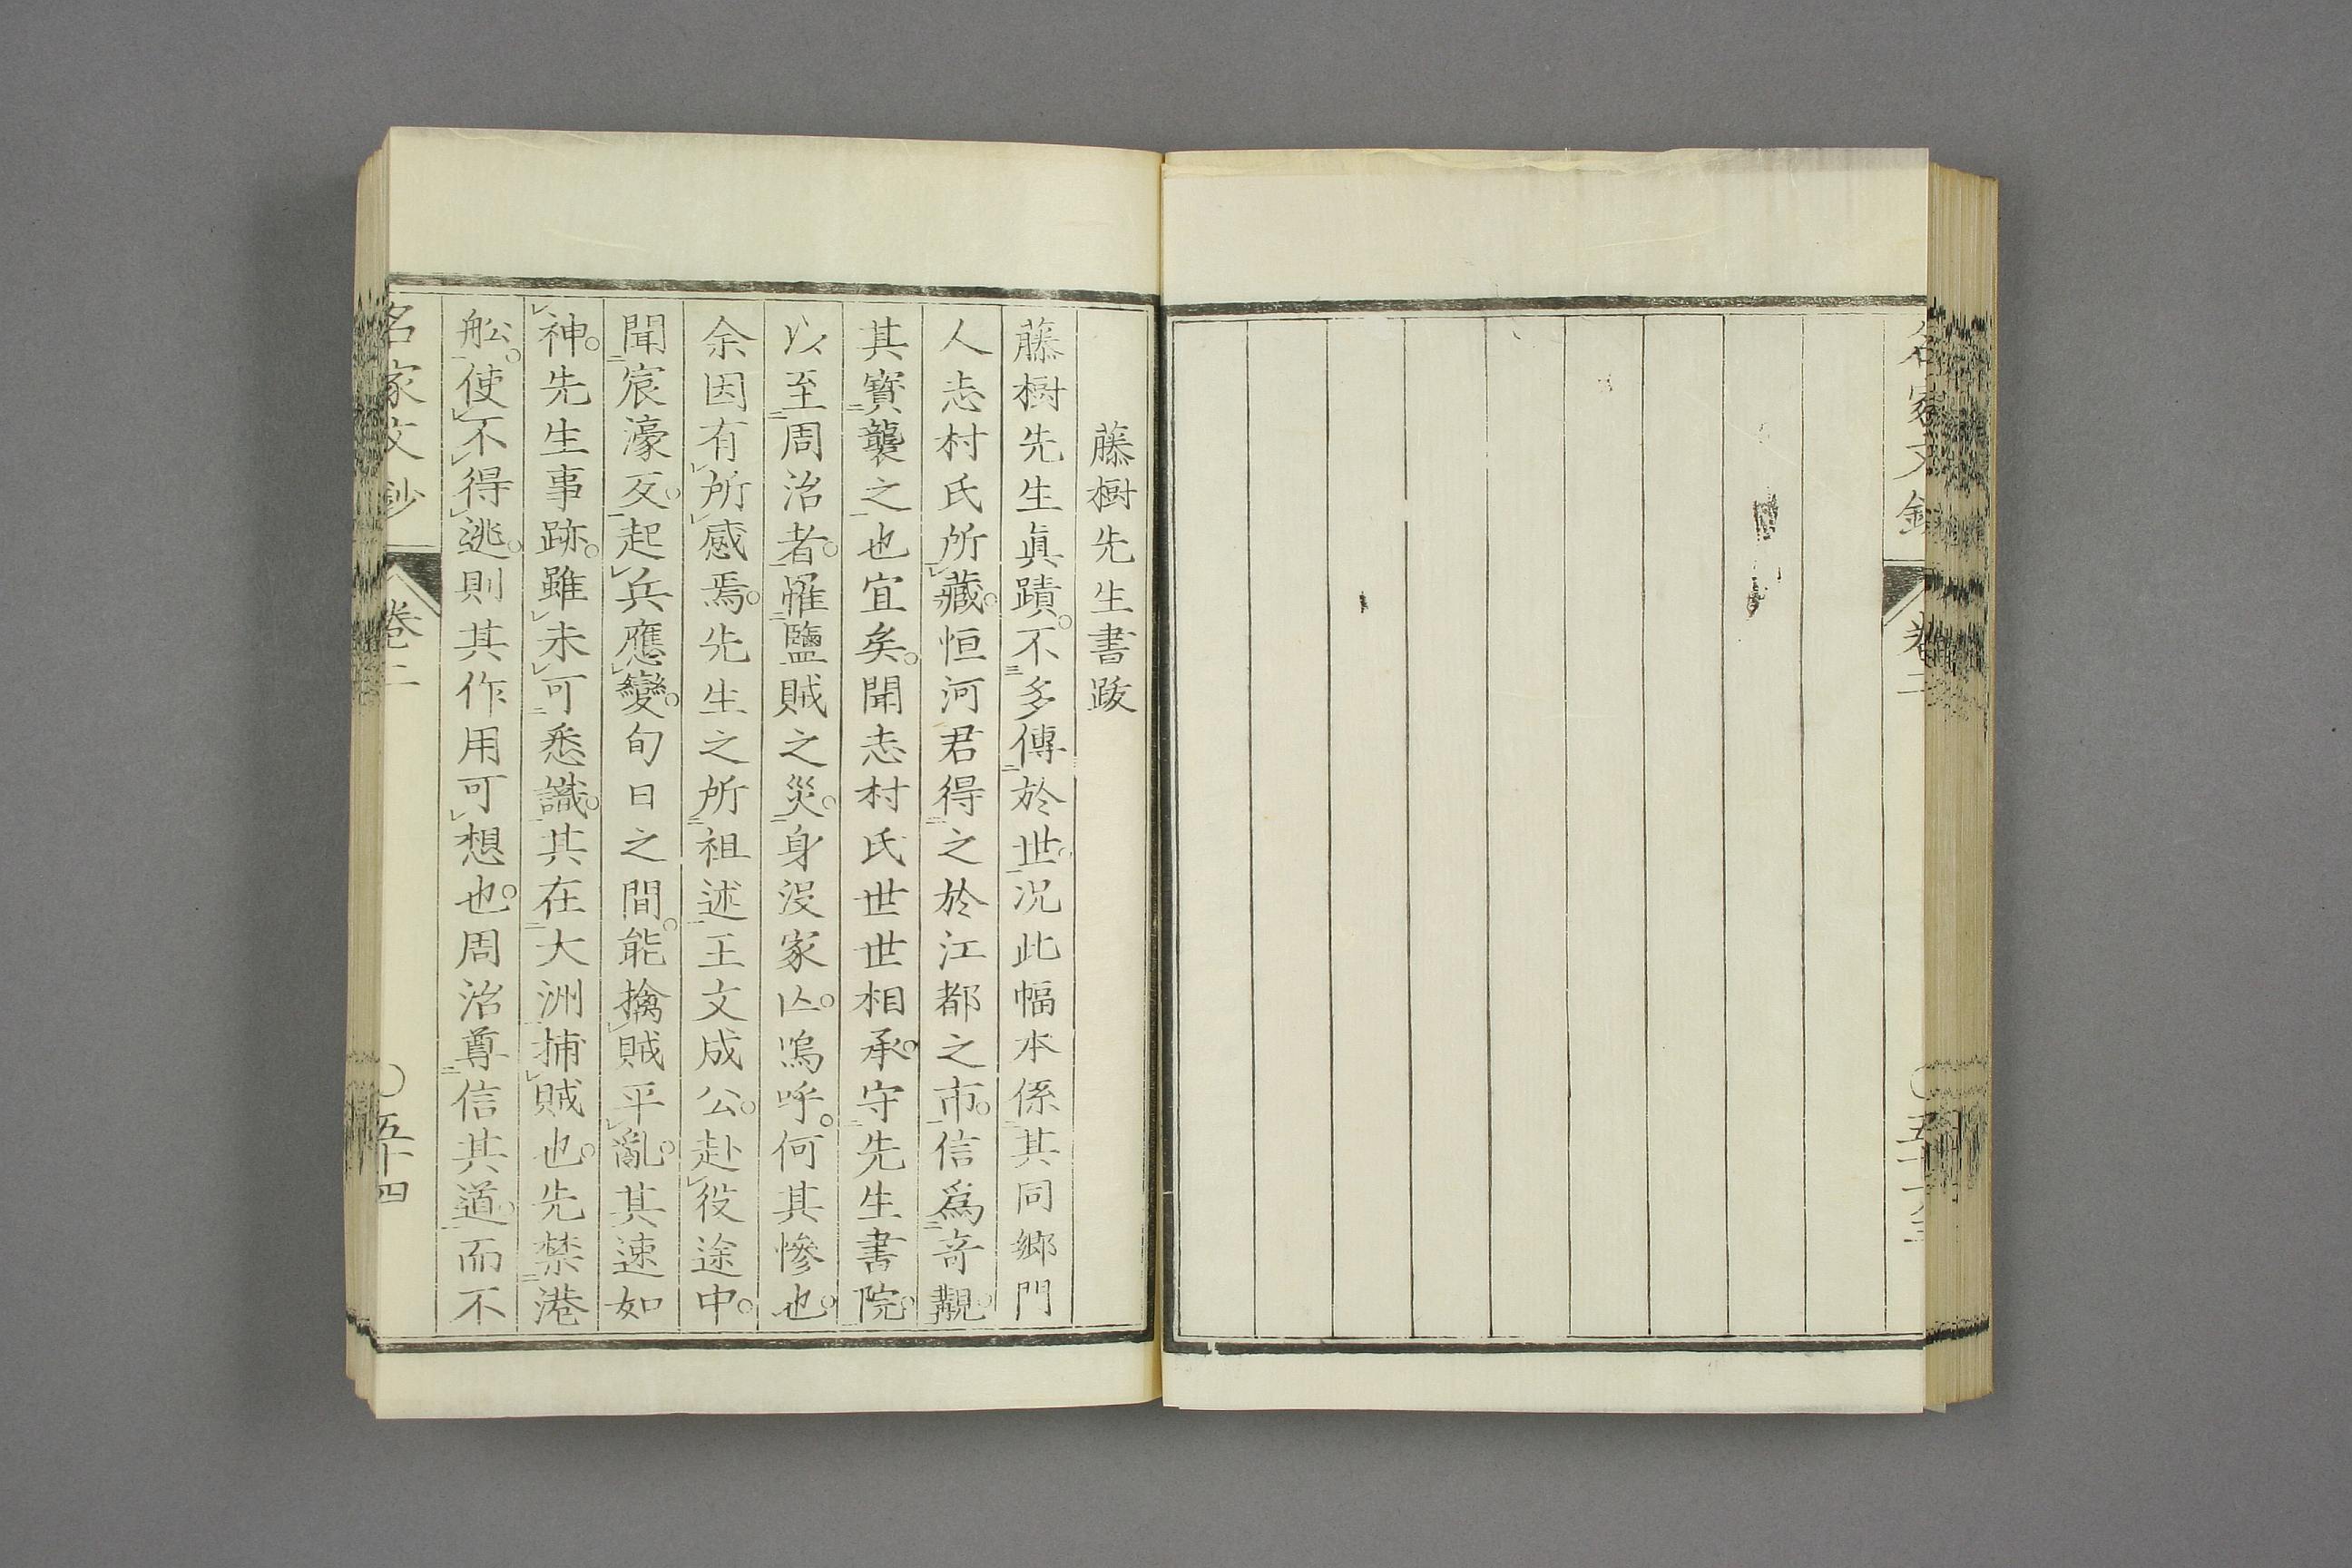 藤樹先生書跋
藤樹先生眞蹟。不多傳於世。况此幅本係其同鄉門
人志村氏所藏。恒河君得之於江都之市。信爲奇觀。
其寳襲之也宜矣。聞志村氏世世相承。守先生書院。
以至周治者。罹鹽賊之災。身沒家亾。嗚呼。何其慘也。
余因有所感焉。先生之所祖述王文成公。赴役途中。
聞宸濠反。起兵應變。旬日之間。能擒賊平亂。其速如
神。先生事跡。雖未可悉識。其在大洲捕賊也。先禁港
舩。使不得逃。則其作用可想也。周治尊信其道。而不
名家文鈔
卷二
〇五十四